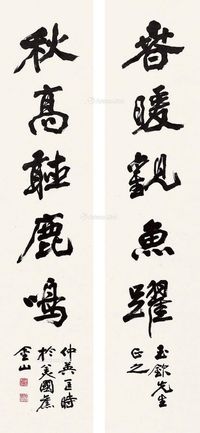 春暖觀魚躍
玉 先生
正之
秋高聽鹿鳴
仲英匡時
於美國舊
金山